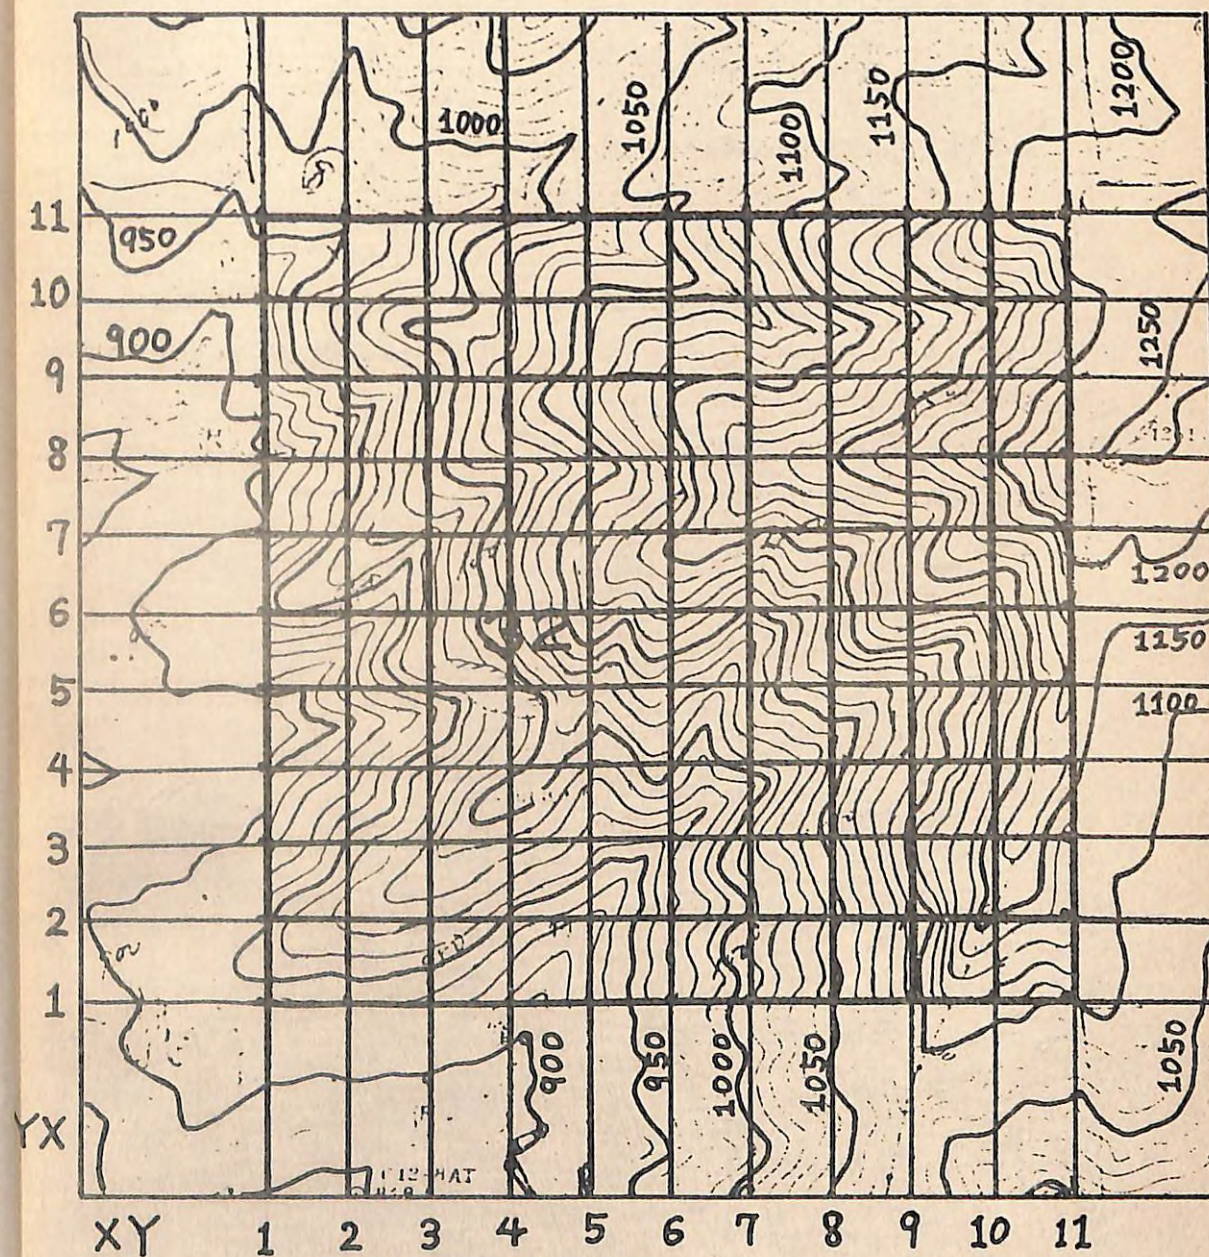 1000
1050
1100
1150
1200
11
950
10
900
1250
9
8
7
1200
6
1150
5
1100
4
3
2
1
900
950
1000
1050
1050
YX
XY 1 2 3 4 5 6 7 8 9 10 11